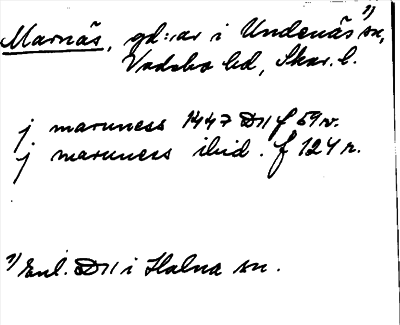 Marnäs, gd:ar i Undenäs 1) sn,
Vadsbo hd, Skar. l.
j maruness 1447 D11 f 59v.
j maruness ibid. f 124 r.
1) Enl. D11 i Halna sn.